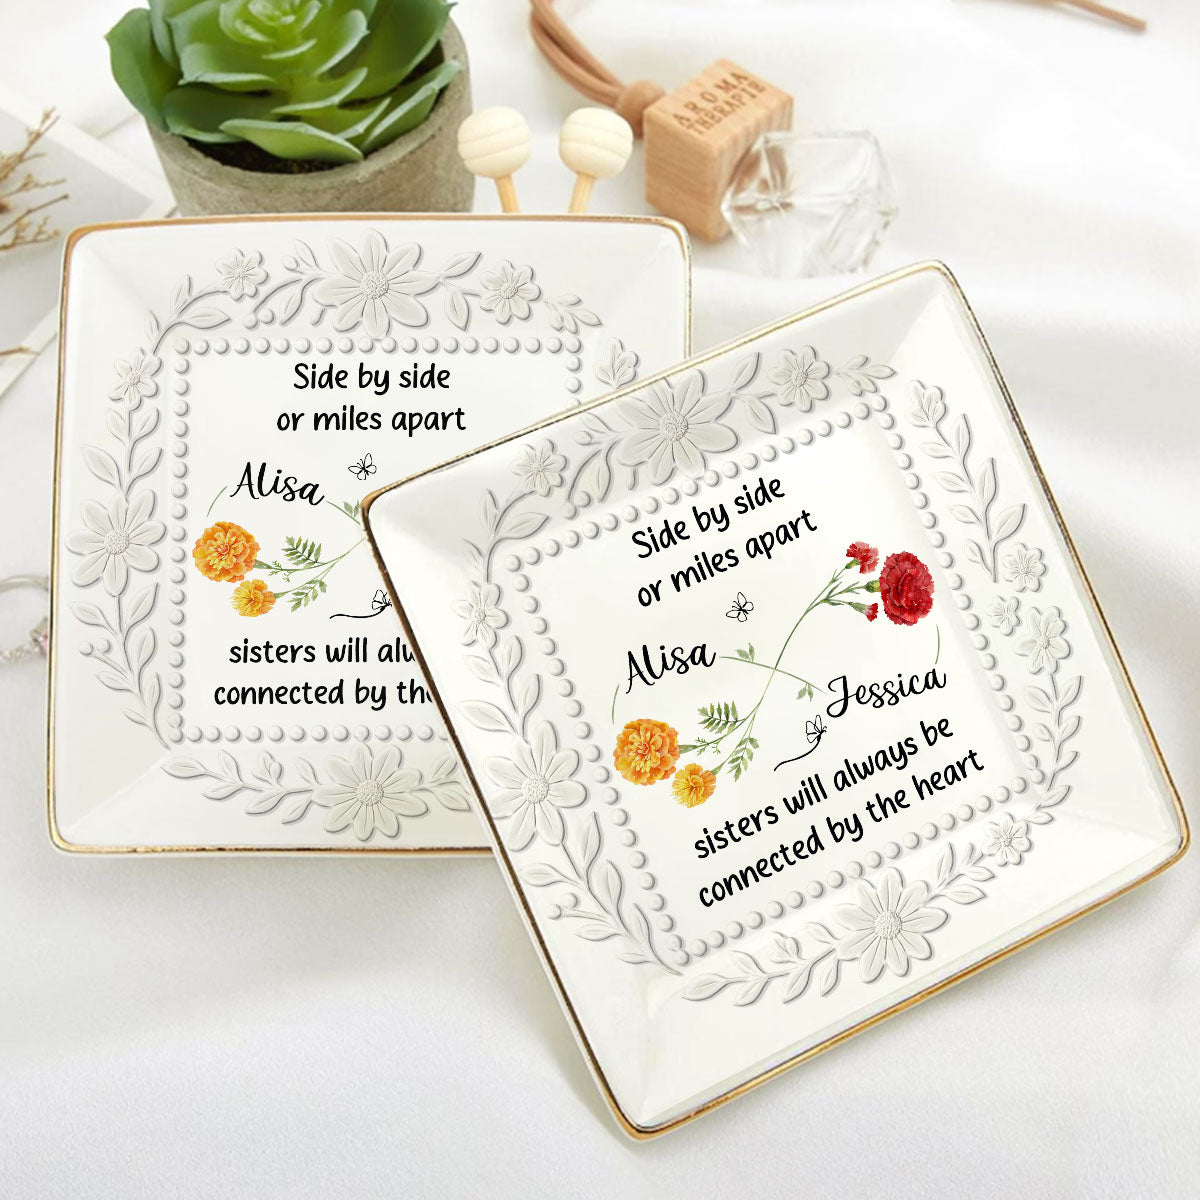 AROMA
THERAPIE
Side by side
or miles apart
Alisa
sisters will alw
connected by the
Side by side
or miles apart
Alisa
Jessica
sisters will always be
connected by the heart